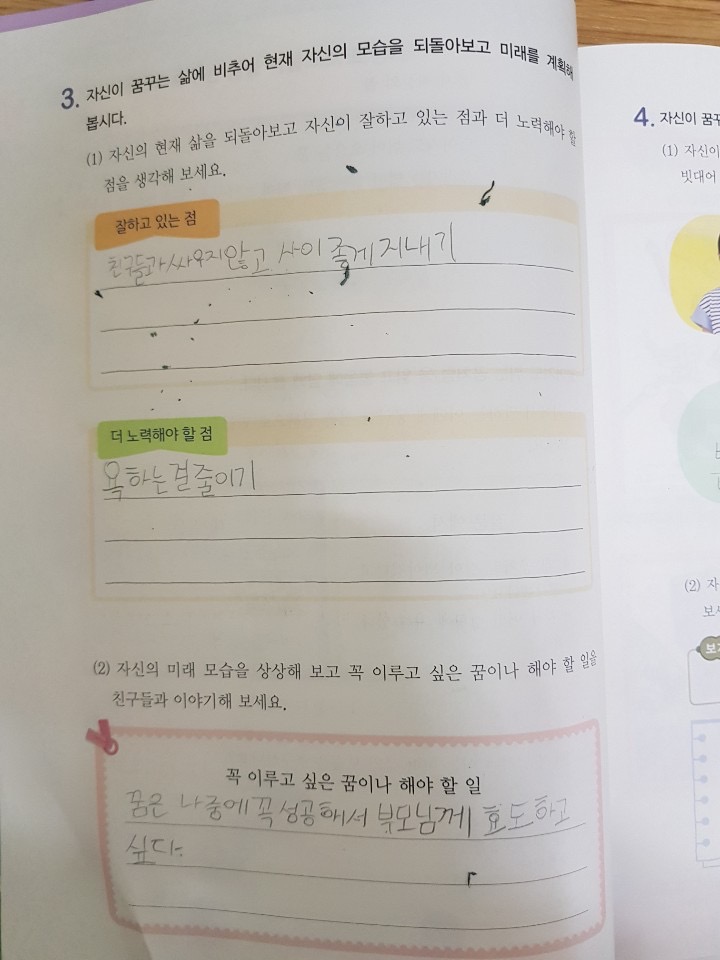 3. 자신이 꿈꾸는 삶에 비추어 현재 자신의 모습을 되돌아보고 미래를 계획해
봅시다.
(1) 자신의 현재 삶을 되돌아보고 자신이 잘하고 있는 점과 더 노력해야 할
점을 생각해 보세요.
잘하고 있는 점
친구들과 싸우지않고 사이 좋게 지내기
더 노력해야 할 점
욕하는걸줄이기
(2) 자신의 미래 모습을 상상해 보고 꼭 이루고 싶은 꿈이나 해야 할 일을
친구들과 이야기해 보세요.
꼭 이루고 싶은 꿈이나 해야 할 일
꿈은 나중에 꼭 성공해서 부모님께 효도하고
싶다.
4. 자신이 꿈꾸
(1) 자신이
빗대어
(2) 자
보